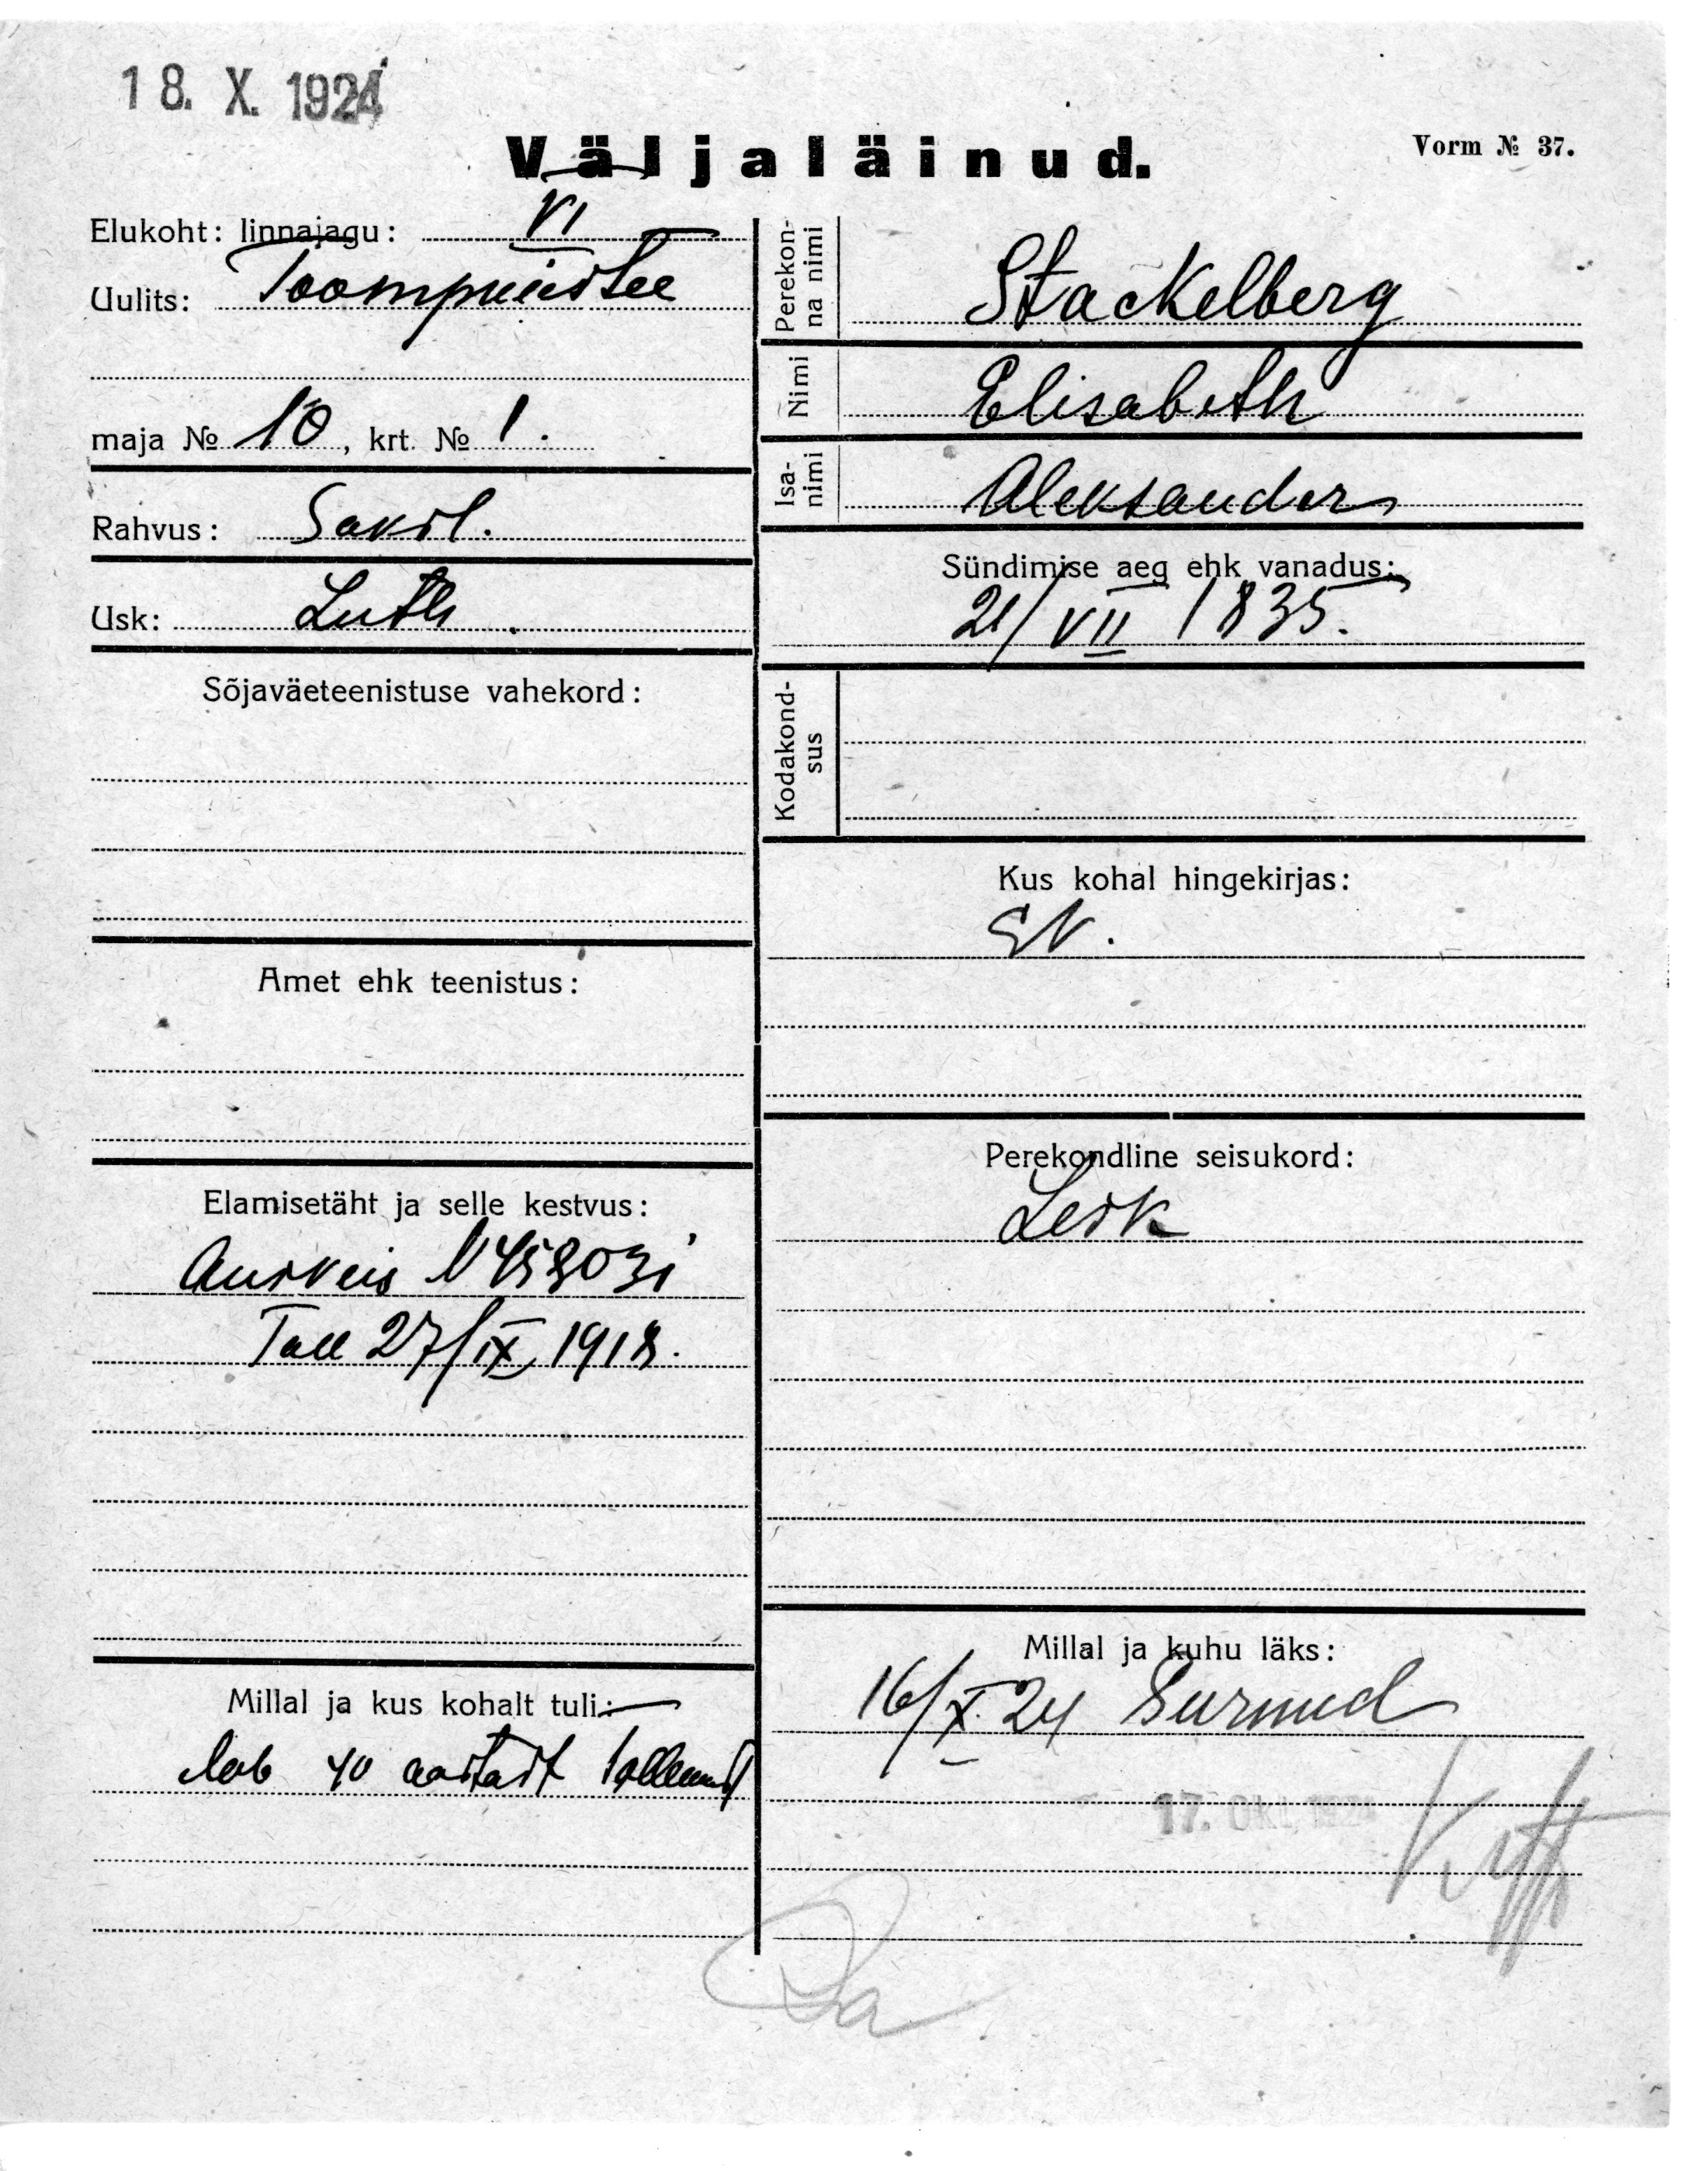 18. X. 1924
Väljaläinud.
Vorm № 37.
Elukoht: linnajagu: VI
Uulits: Toompuiestee
maja № 10, krt. № 1.
Rahvus: Saksl.
Usk: Luth.
Sõjaväeteenistuse vahekord:
Amet ehk teenistus:
Elamisetäht ja selle kestvus:
Ausveis N
Tall 27/IX 1918.
Millal ja kus kohalt tuli:
elab 40 aastast
Perekon-
na nimi
Stackelberg
Nimi Elisabeth
Isa-
nimi
Aleksander
Sündimise aeg ehk vanadus:
21/VII 1835.
Kodakond-
sus
Kus kohal hingekirjas:
Perekondline seisukord:
Lesk
Millal ja kuhu läks:
16/X. 24 Surnud
17. OKT. 1924